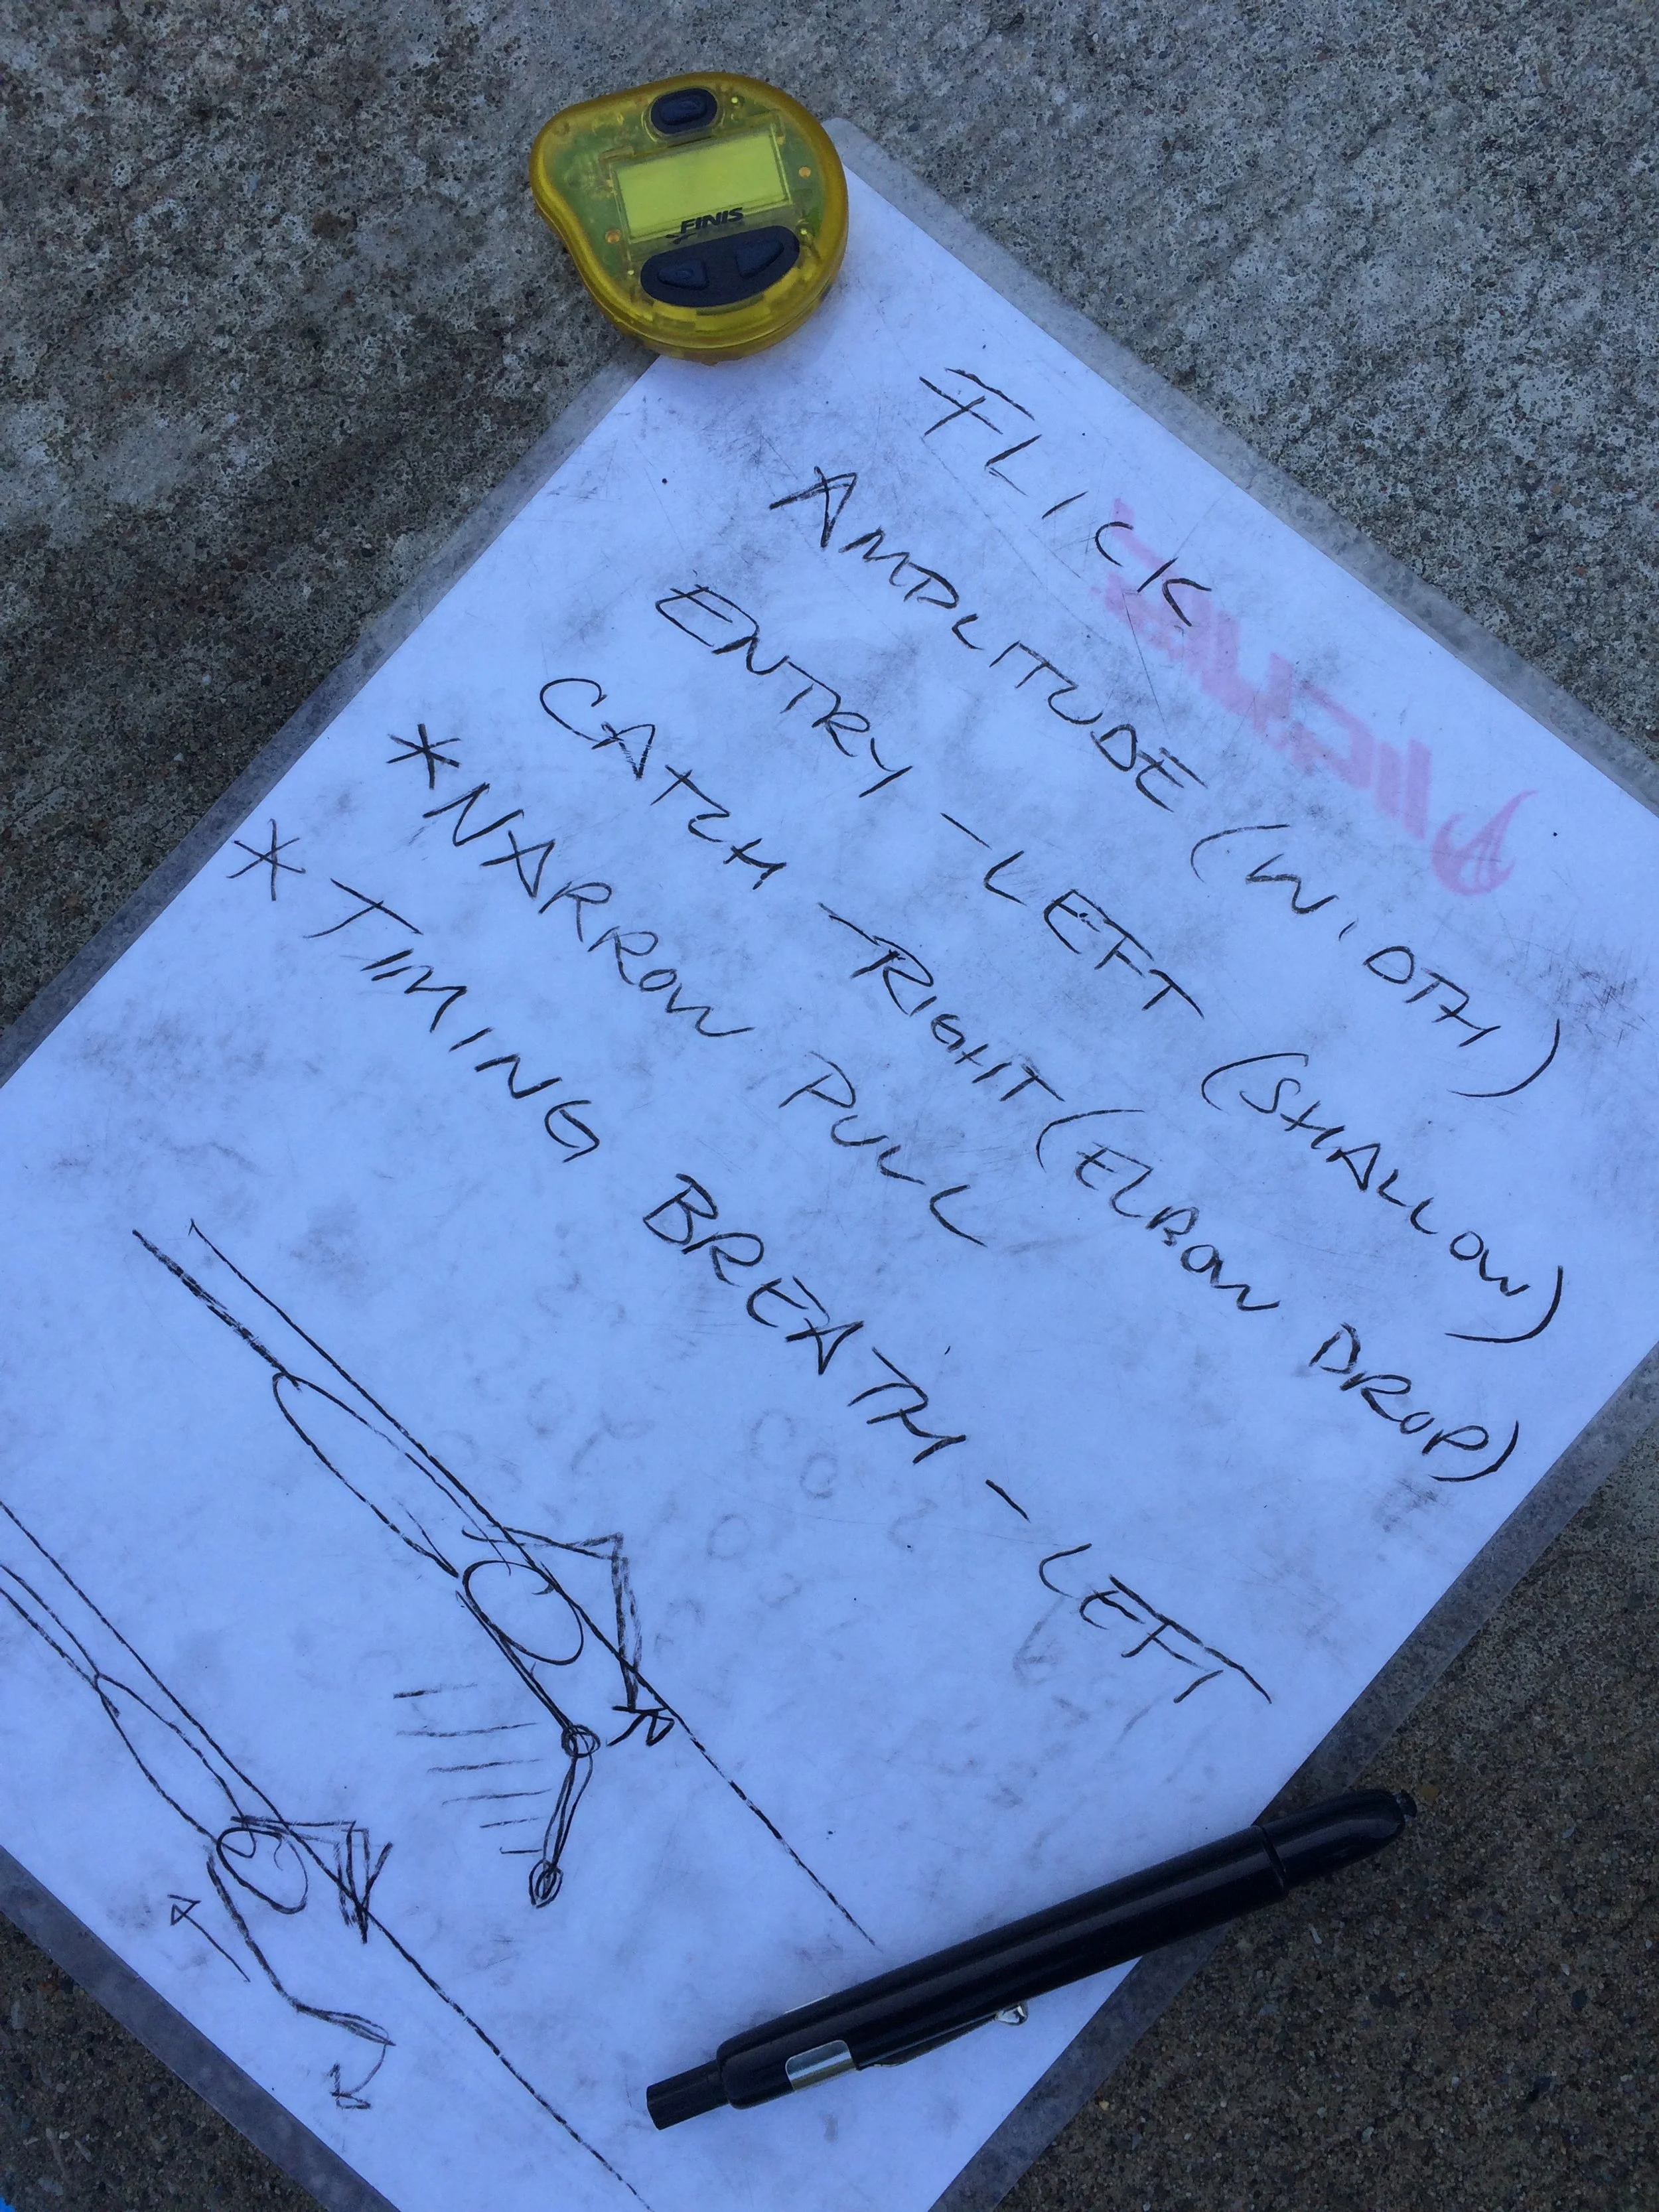 FINIS
FLICK
AMPLITUDE (WIDTH)
ENTRY - LEFT (SHALLOW)
CATCH - RIGHT (ELBOW DROP)
* NARROW PULL
* TIMING BREATH - LEFT